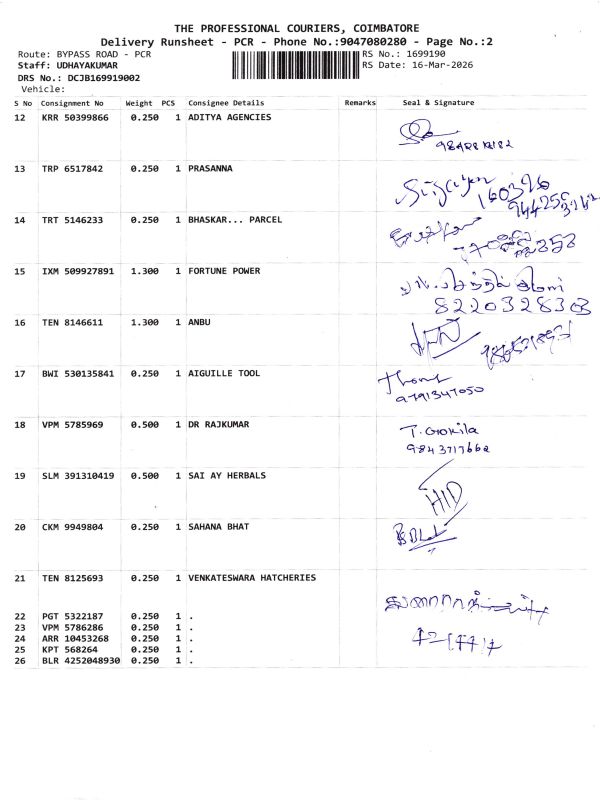 THE PROFESSIONAL COURIERS, COIMBATORE
Delivery Runsheet - PCR - Phone No.:9047080280 - Page No.:2
Route: BYPASS ROAD - PCR
RS No.: 1699190
Staff: UDHAYAKUMAR
RS Date: 16-Mar-2026
DRS No.: DCJB169919002
Vehicle:
S No Consignment No Weight PCS Consignee Details Remarks Seal & Signature
12 KRR 50399866 0.250 1 ADITYA AGENCIES
13 TRP 6517842 0.250 1 PRASANNA
160396
14 TRT 5146233 0.250 1 BHASKAR... PARCEL
15 IXM 509927891 1.300 1 FORTUNE POWER
8220328303
16 TEN 8146611 1.300 1 ANBU
17 BWI 530135841 0.250 1 AIGUILLE TOOL
9791347050
18 VPM 5785969 0.500 1 DR RAJKUMAR
T. Gokila
9843717662
19 SLM 391310419 0.500 1 SAI AY HERBALS
20 CKM 9949804 0.250 1 SAHANA BHAT
21 TEN 8125693 0.250 1 VENKATESWARA HATCHERIES
22 PGT 5322187 0.250 1 .
23 VPM 5786286 0.250 1 .
24 ARR 10453268 0.250 1 .
25 KPT 568264 0.250 1 .
26 BLR 4252048930 0.250 1 .